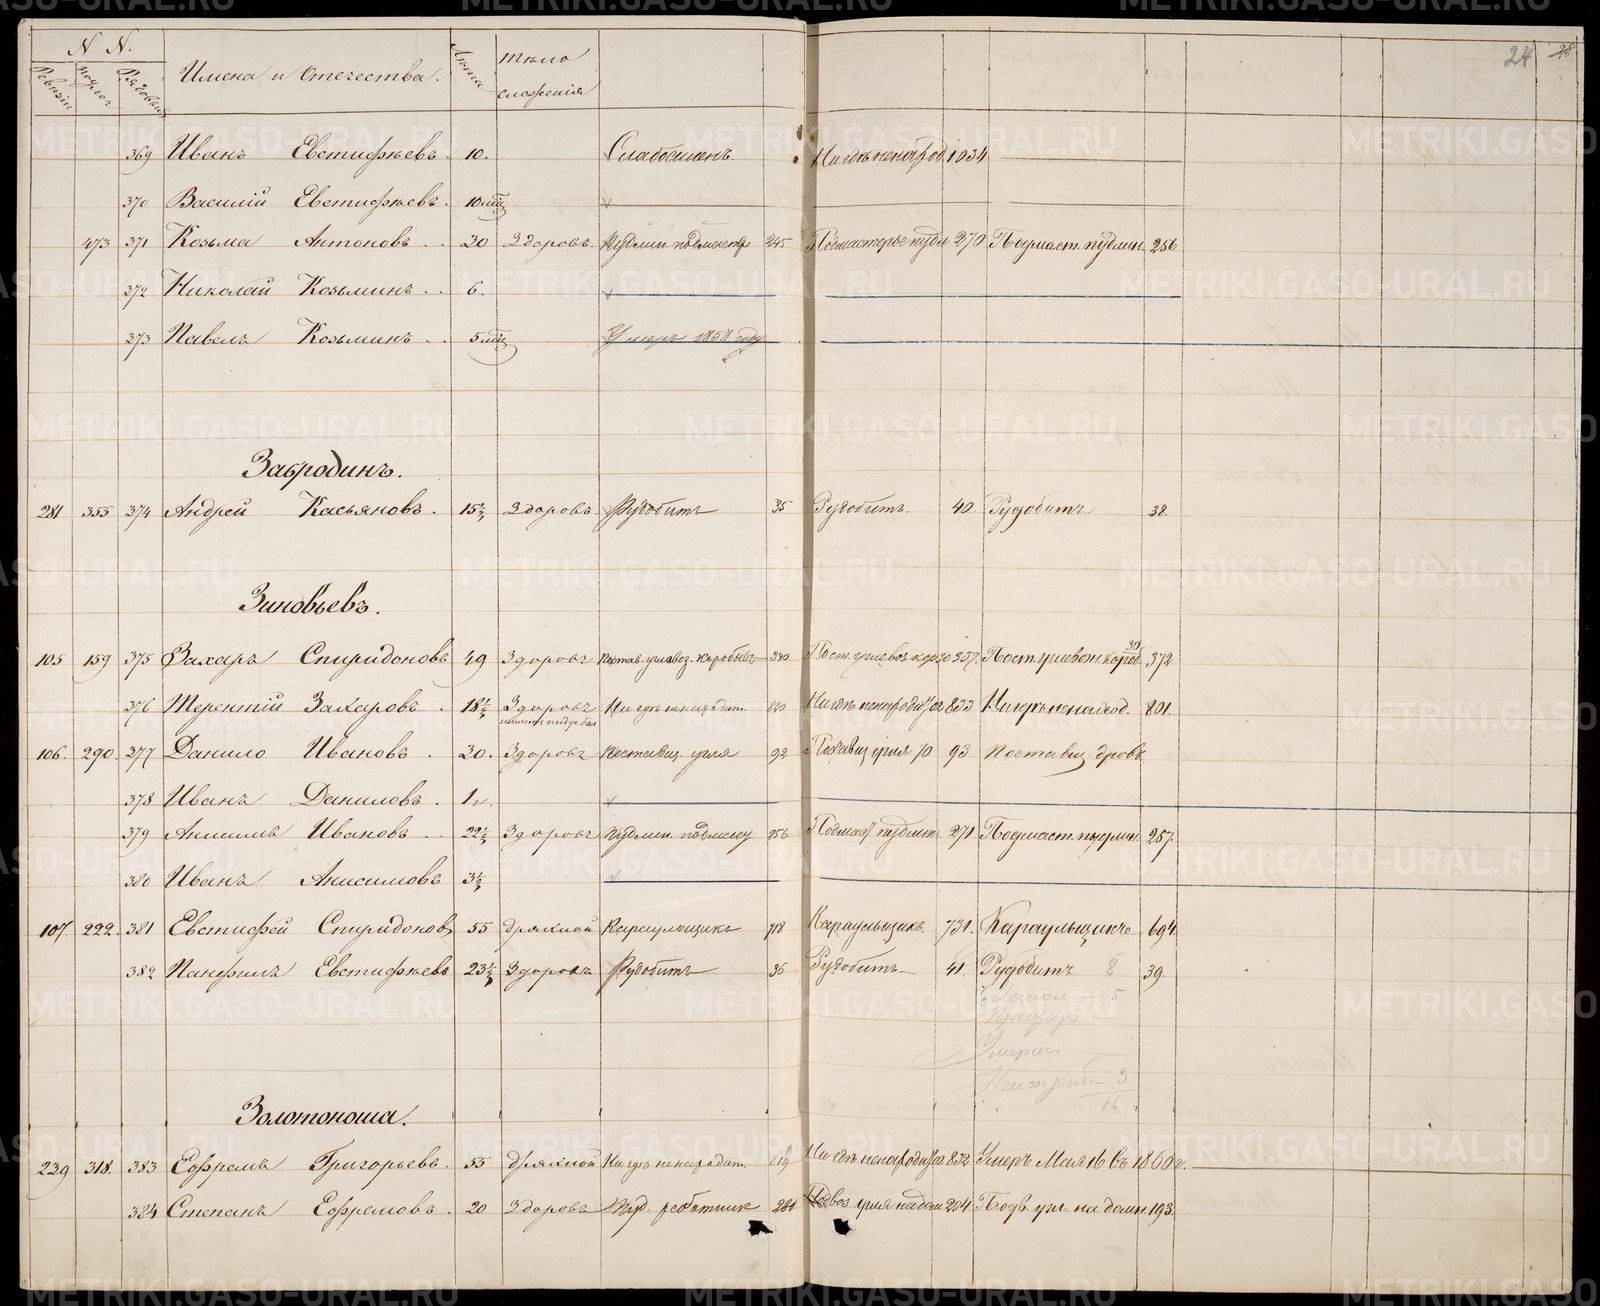 N N.
Ревизіи
Рядовыя
Имена и Отечества.
Лѣта
тѣло сложенія
24
28
369 Иванъ Евстифѣевъ. 10. Слабосиленъ Нигдѣ ненаход. 1034
370 Василій Евстифѣевъ. 10 мѣс
473 371 Козьма Антоновъ.. 30 Здоровъ. Пудлин. подмаст 245 Подмастерье пудл 270 Подмаст. пудлин. 256
372 Николай Козьминъ.. 6.
373 Павелъ Козьминъ.. 5 мѣс Умеръ 1858 году
Забродинъ.
281 355 374 Андрей Касьяновъ. 15½ Здоровъ Рудобитъ 35 Рудобитъ. 40 Рудобитъ 38.
Зиновьевъ.
105 159 375 Захаръ Спиридоновъ 49 Здоровъ Постав. углевоз. коробьевъ 340 Пост. углевоз. короб 357. Пост. углевозн. короб. 30 372
376 Терентій Захаровъ. 18½ Здоровъ Нигдѣ ненаходит. 820 Нигдѣ ненаходится 833 Нигдѣ ненаход. 801.
106. 290. 377 Данило Ивановъ. 30. Здоровъ Поставщ. угля 92 Поставщ угля 70 93 Поставщ. дровъ
378 Иванъ Даниловъ. 1
379 Анисимъ Ивановъ.. 22½ Здоровъ Пудлин. подмаст 256 Подмаст пудлинг. 271. Подмаст. пудлин. 257.
380 Иванъ Анисимовъ 3½
107 222. 381 Евстифей Спиридоновъ 55 Дряхлой Караульщикъ 718 Караульщикъ. 731. Караульщикъ 694
382 Панфилъ Евстифѣевъ 23½ Здоровъ Рудобитъ 36 Рудобитъ 41. Рудобитъ 8 39.
5
Умерш.
3
16
Золотоноша.
239 318. 383 Ефремъ Григорьевъ. 55 Дряхлой Нигдѣ ненаходит. 819 Нигдѣ ненаходится 832 Умеръ Мая 16 въ 1860 г.
384 Степанъ Ефремовъ. 20 Здоровъ Пуд. работник 281 Подвоз угля на дом 204. Подв. угл. на домн. 193.
METRIKI.GASO-URAL.RU